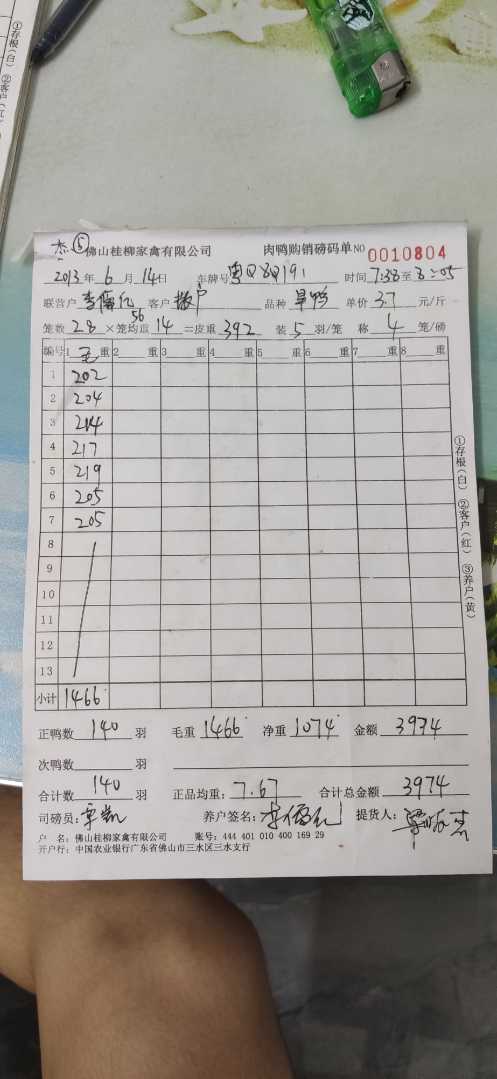 ①存根(白) ②客户(红)
杰 ⑤
佛山桂柳家禽有限公司 肉鸭购销磅码单 NO 0010804
2013年 6月 14日 车牌号 粤Q8Q191 时间 7:38至8:05
联营户 李 客户 散户 品种 旱鸭 单价 3.7 元/斤
56
笼数 28 ×笼均重 14 =皮重 392 装 5 羽/笼 称 4 笼/磅
编号 1 毛 重 2 重 3 重 4 重 5 重 6 重 7 重 8 重
1 202
2 204
3 214
4 217
5 219
6 205
7 205
8
9
10
11
12
13
小计 1466
①存根(白) ②客户(红) ③养户(黄)
正鸭数 140 羽 毛重 1466 净重 1074 金额 3974
次鸭数 羽
合计数 140 羽 正品均重: 7.67 合计总金额 3974
司磅员: 养户签名: 李 提货人: 覃
户 名: 佛山桂柳家禽有限公司 账号: 444 401 010 400 169 29
开户行: 中国农业银行广东省佛山市三水区三水支行